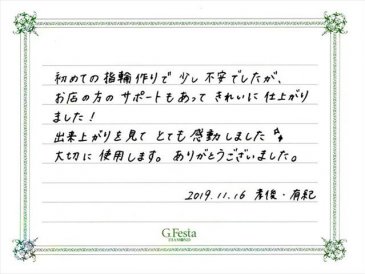 初めての指輪作りで少し不安でしたが、
お店の方のサポートもあってきれいに仕上がり
ました！
出来上がりを見てとても感動しました
大切に使用します。ありがとうございました。
2019.11.16 孝俊・有紀
G.Festa
DIAMOND